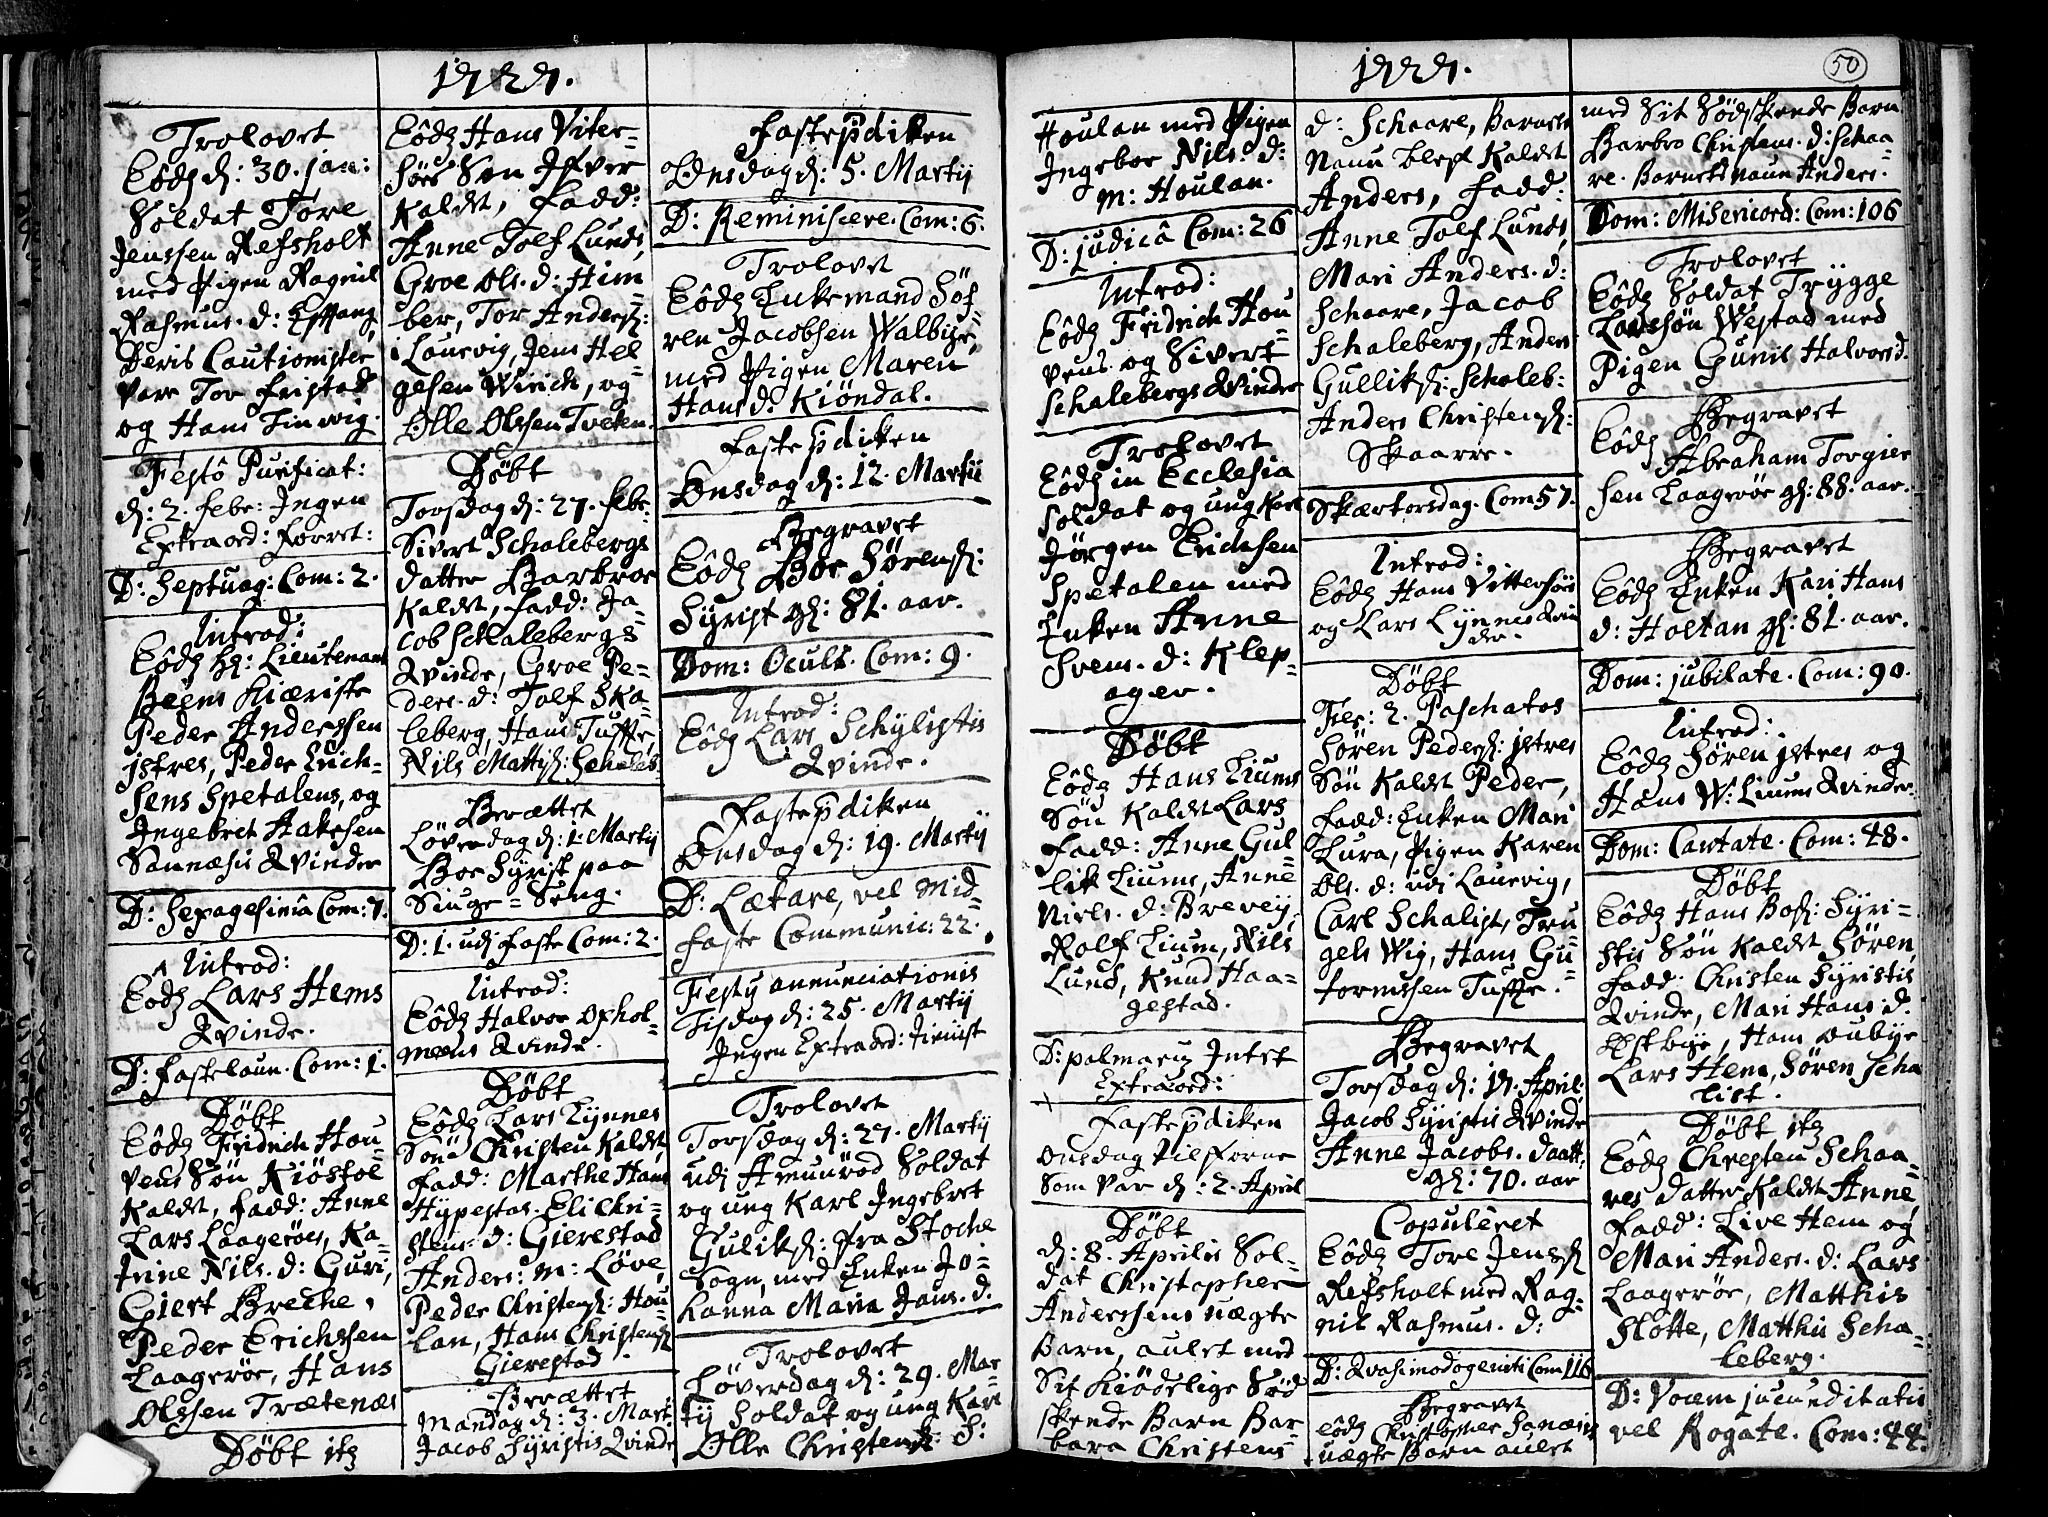 1727.
Trolovet
Eôdz d: 30. jan:
Soldat Tore
Jenssen Refsholt
med Pigen Ragnil
Rasmus. d:
Deris Cautionister
vare Tor Fristad
og Hans Linwig.
Festô Purificat:
d: 2. febr: Ingen
Extraord: forret:
D: Septuag: Com: 2.
Introd:
Eôdz Hr: Lieutenant
Beems Kiæriste
Peder Anderssen
jstres, Peder Erich-
sens Spetalens, og
Ingebret Hakesen
Sannæsis Qvinder
D: Sexagesima Com: 7.
Introd:
Eodz Lars Hems
Qvinde.
D: Fastelaun. Com: 1.
Döbt
Eôdz Fridrich Hou=
vens Søn Kiöstol
kaldt, fadd: Anne
Lars Laagerøes, Ka=
trine Nils. d: Guri,
Giert Breche,
Peder Erichssen
Laagerøe, Hans
Olssen Trætenæs
Döbt itz
Eôdz Hans Viter=
söes Søn Ifver
kaldt, fadd:
Anne Tolf Lunds,
Groe Ols. d: Him=
ber, Tor Anders:
i Laurvig, Jens Hel=
gesen Wirich, og
Olle Olssen Tveten.
Döbt
Torsdag d: 27. febr:
Sivert Schalebergs
datter Barbroe
kaldt, fadd: Ja=
cob Schalebergs
Qvinde, Groe Pe=
ders. d: Tolf Ska=
leberg, Hans Tufte
Nils Mattis: Schaleb.
Berættet
Løverdag d: 1. Martij
Boe Syrist paa
Siuge=Seng.
D: 1. udj faste Com: 2.
Introd:
Eôdz Halvor Oxhol=
mens Qvinde.
Döbt
Eôdz Lars Lynnes
Søn Christen kaldt,
fadd: Marthe Hans
Hypestas. Eli Chri=
stens. d: Gierestad
Anders: m: Løve,
Peder Christens: Hou=
lan, Hans Christens:
Gierestad.
Berættet
Mandag d: 3. Mart:
Jacob Syristis Qvinde
Fastepdiken
Onsdag d: 5. Martij
D: Reminiscere. Com: 6.
Trolovet
Eôdz Enkemand Söf=
ren Jacobsen Walbye,
med Pigen Maren
Hans d. Kiöndal.
Fastepdiken
Onsdag d: 12. Martij
Begravet
Eôdz Boe Sørens:
Syrist gl: 81. aar.
Dom: Oculi. Com: 9.
Introd:
Eôdz Lars Schylistis
Qvinde.
Fastepdiken
Onsdag d: 19. Martij
D: Lætare, vel Mid=
faste Communic: 22.
Festy annunciationis
Tisdag d: 25. Martij
Ingen Extraord: Tieniist
Trolovet
Torsdag d: 27. Martij
udj Amunrød Soldat
og ung Karl Ingebret
Guliks: fra Stoche
Sogn, med Enken Jo=
hanna Maria Jans. d.
Trolovet
Løverdag d: 29. Mar=
tij Soldat og ung Karl
Olle Christens: S:
1727.
50
Houlan med Pigen
Ingebor Nils: d:
m: Houlan.
D: judica Com: 26
Introd:
Eôdz Fridrich Hou=
vens og Sivert
Schalebergs Qvinde
Trolovet
Eôdz in Ecclesia
Soldat og ung Karl
Jörgen Erichsen
Spetalen med
Enken Anne
Svens. d: Klep=
ager.
Döbt
Eôdz Hans Liums
Søn kaldt Lars
fadd: Anne Gul=
lik Liums, Anne
Niels. d: Brevey,
Rolf Lium, Nils
Lund, Knud Haa=
gestad.
D: palmarum Intet
Extraord:
Fastepdiken
Onsdag tilforne
Som var d: 2. April
Döbt
d: 8. Aprilis Sol=
dat Christopher
Anderssens uægte
Barn, aulet med
Sit kiödelige Söd=
skende Barn Bar=
bara Christens
d: Schaare, Barnets
Naun blef kaldt
Anders, fadd:
Anne Tolf Lunds,
Mari Anders. d:
Schaare, Jacob
Schaleberg, Anders
Gulliks: Schaleb:
Anders Christens:
Skaarre.
Skærtorsdag. Com 57.
Introd:
Eôdz Hans Vittersöes
og Lars Lynnes Qvin=
der.
Döbt
Fer: 2. Paschatos
Søren Peders: jstres
Søn kaldt Peder,
fadd: Enken Mari
Lura, Pigen Karen
Ols. d: udi Laurvig,
Carl Schalist, Tru=
gels Wig, Hans Gu=
tormssen Tufte.
Begravet
Torsdag d: 17. April:
Jacob Syristis Qvinde
Anne Jacobs. daatt:
gl: 70. aar
Copuleret
Eôdz Tore Jens:
Refsholt med Rag=
nil Rasmus. d:
D: Qvasimodogeniti Com 116
Begravet
Eôdz Christopher Sanæsis
uægte Barn aulet
med Sit Södskende Barn
Barbro Christens. d: Schaa=
re. Barnets naun Anders.
Dom: Misericord: Com: 106
Trolovet
Eôdz Soldat Trygge
Larssøn Westad med
Pigen Gunil Halvors d.
Begravet
Eôdz Abraham Torgier=
sen Laagerøe gl: 88. aar.
Begravet
Eôdz Enken Kari Hans
d: Holtan gl: 81. aar.
Dom: jubilate. Com: 90.
Introd:
Eôdz Søren jstres og
Hans W: Liums Qvinder.
Dom: Cantate. Com: 48.
Döbt
Eôdz Hans Bos: Syri=
stis Søn kaldt Søren,
fadd: Christen Syristis
Qvinde, Mari Hans. d.
Østbye, Hans Oubye
Lars Hem, Søren Scha
list.
Döbt itz
Eôdz Chresten Schaa=
res datter kaldt Anne
fadd: Live Hem og
Mari Anders. d: Lars
Laagerøe, Matthis
Slotte, Matthis Scha=
leberg.
D: Vocem jucunditatis
vel Rogate. Com: 44.